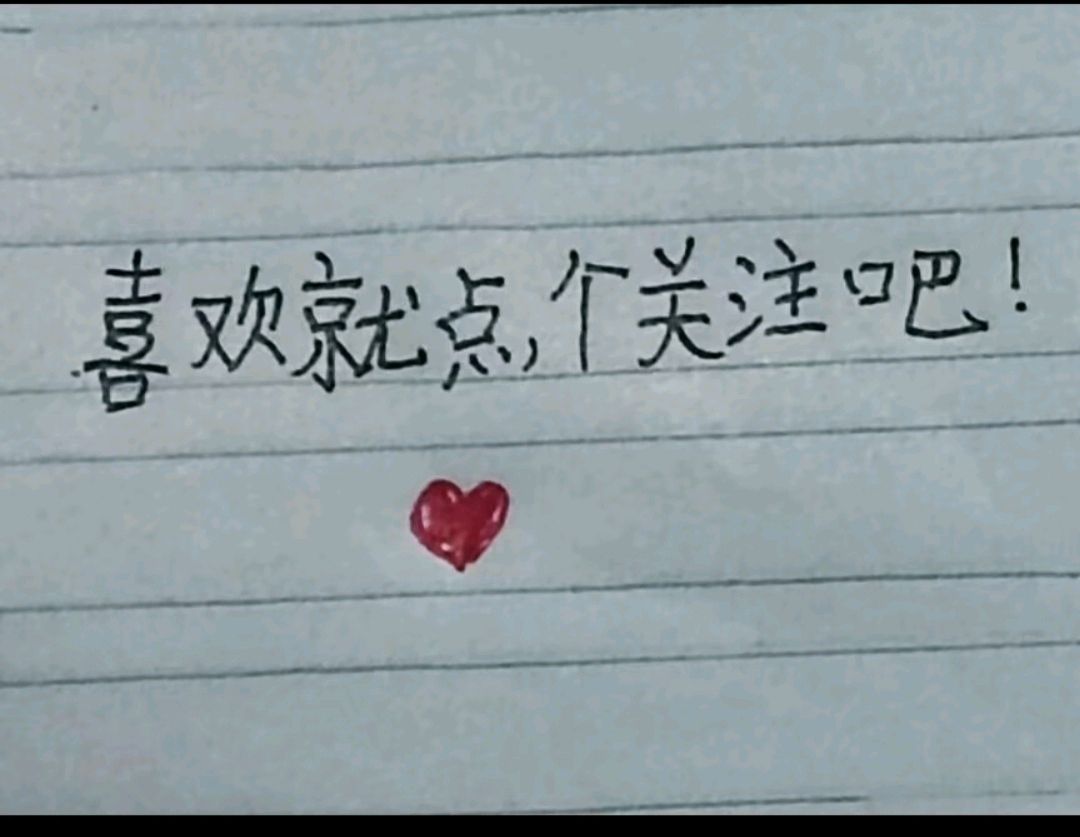 喜欢就点个关注吧！